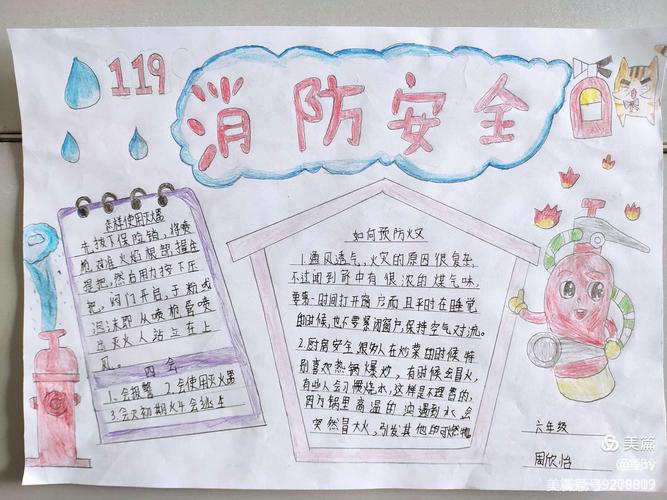 119
消防安全
怎样使用灭火器
先拔下保险销,将喷
枪对准火焰根部,握住
提把,然后用力按下压
把,阀门开启,干粉或
泡沫即从喷射管喷
出灭火人站立在上
风。
四会
1.会报警 2.会使用灭火器
3.会灭初期火4.会逃生
如何预防火灾
1.通风透气,火灾的原因很复杂,
不过闻到厨中有很浓的煤气味,
要第一时间打开窗户而且平时在睡觉
的时候,也不要紧闭窗户,保持空气对流。
2.厨房安全很多人在炒菜的时候特
别喜欢热锅爆炒,有时候会冒火,
有些人会习惯烧水,这样是不理智的,
因为锅里高温的油遇到水,会
突然冒大火,引发其他的可燃物
六年级
周欣怡
美篇